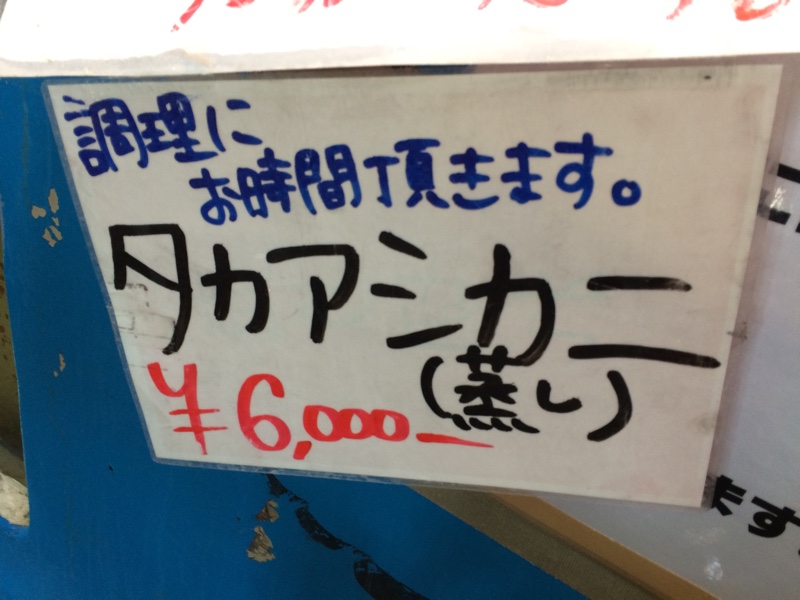 調理に
お時間頂きます。
タカアシカニ
(蒸し)
¥6,000ー
ます